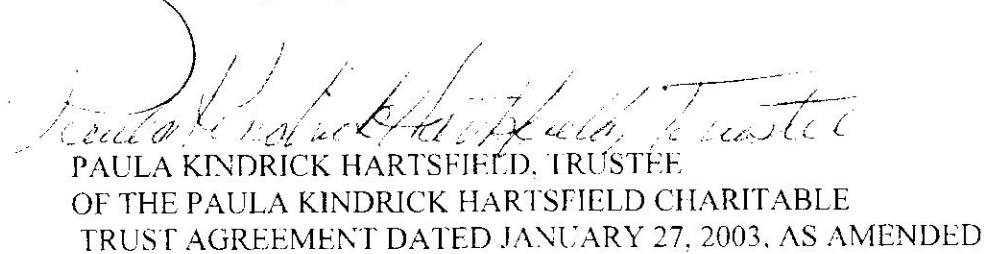 Paula Kindrick Hartsfield, Trustee
PAULA KINDRICK HARTSFIELD, TRUSTEE
OF THE PAULA KINDRICK HARTSFIELD CHARITABLE
TRUST AGREEMENT DATED JANUARY 27, 2003, AS AMENDED